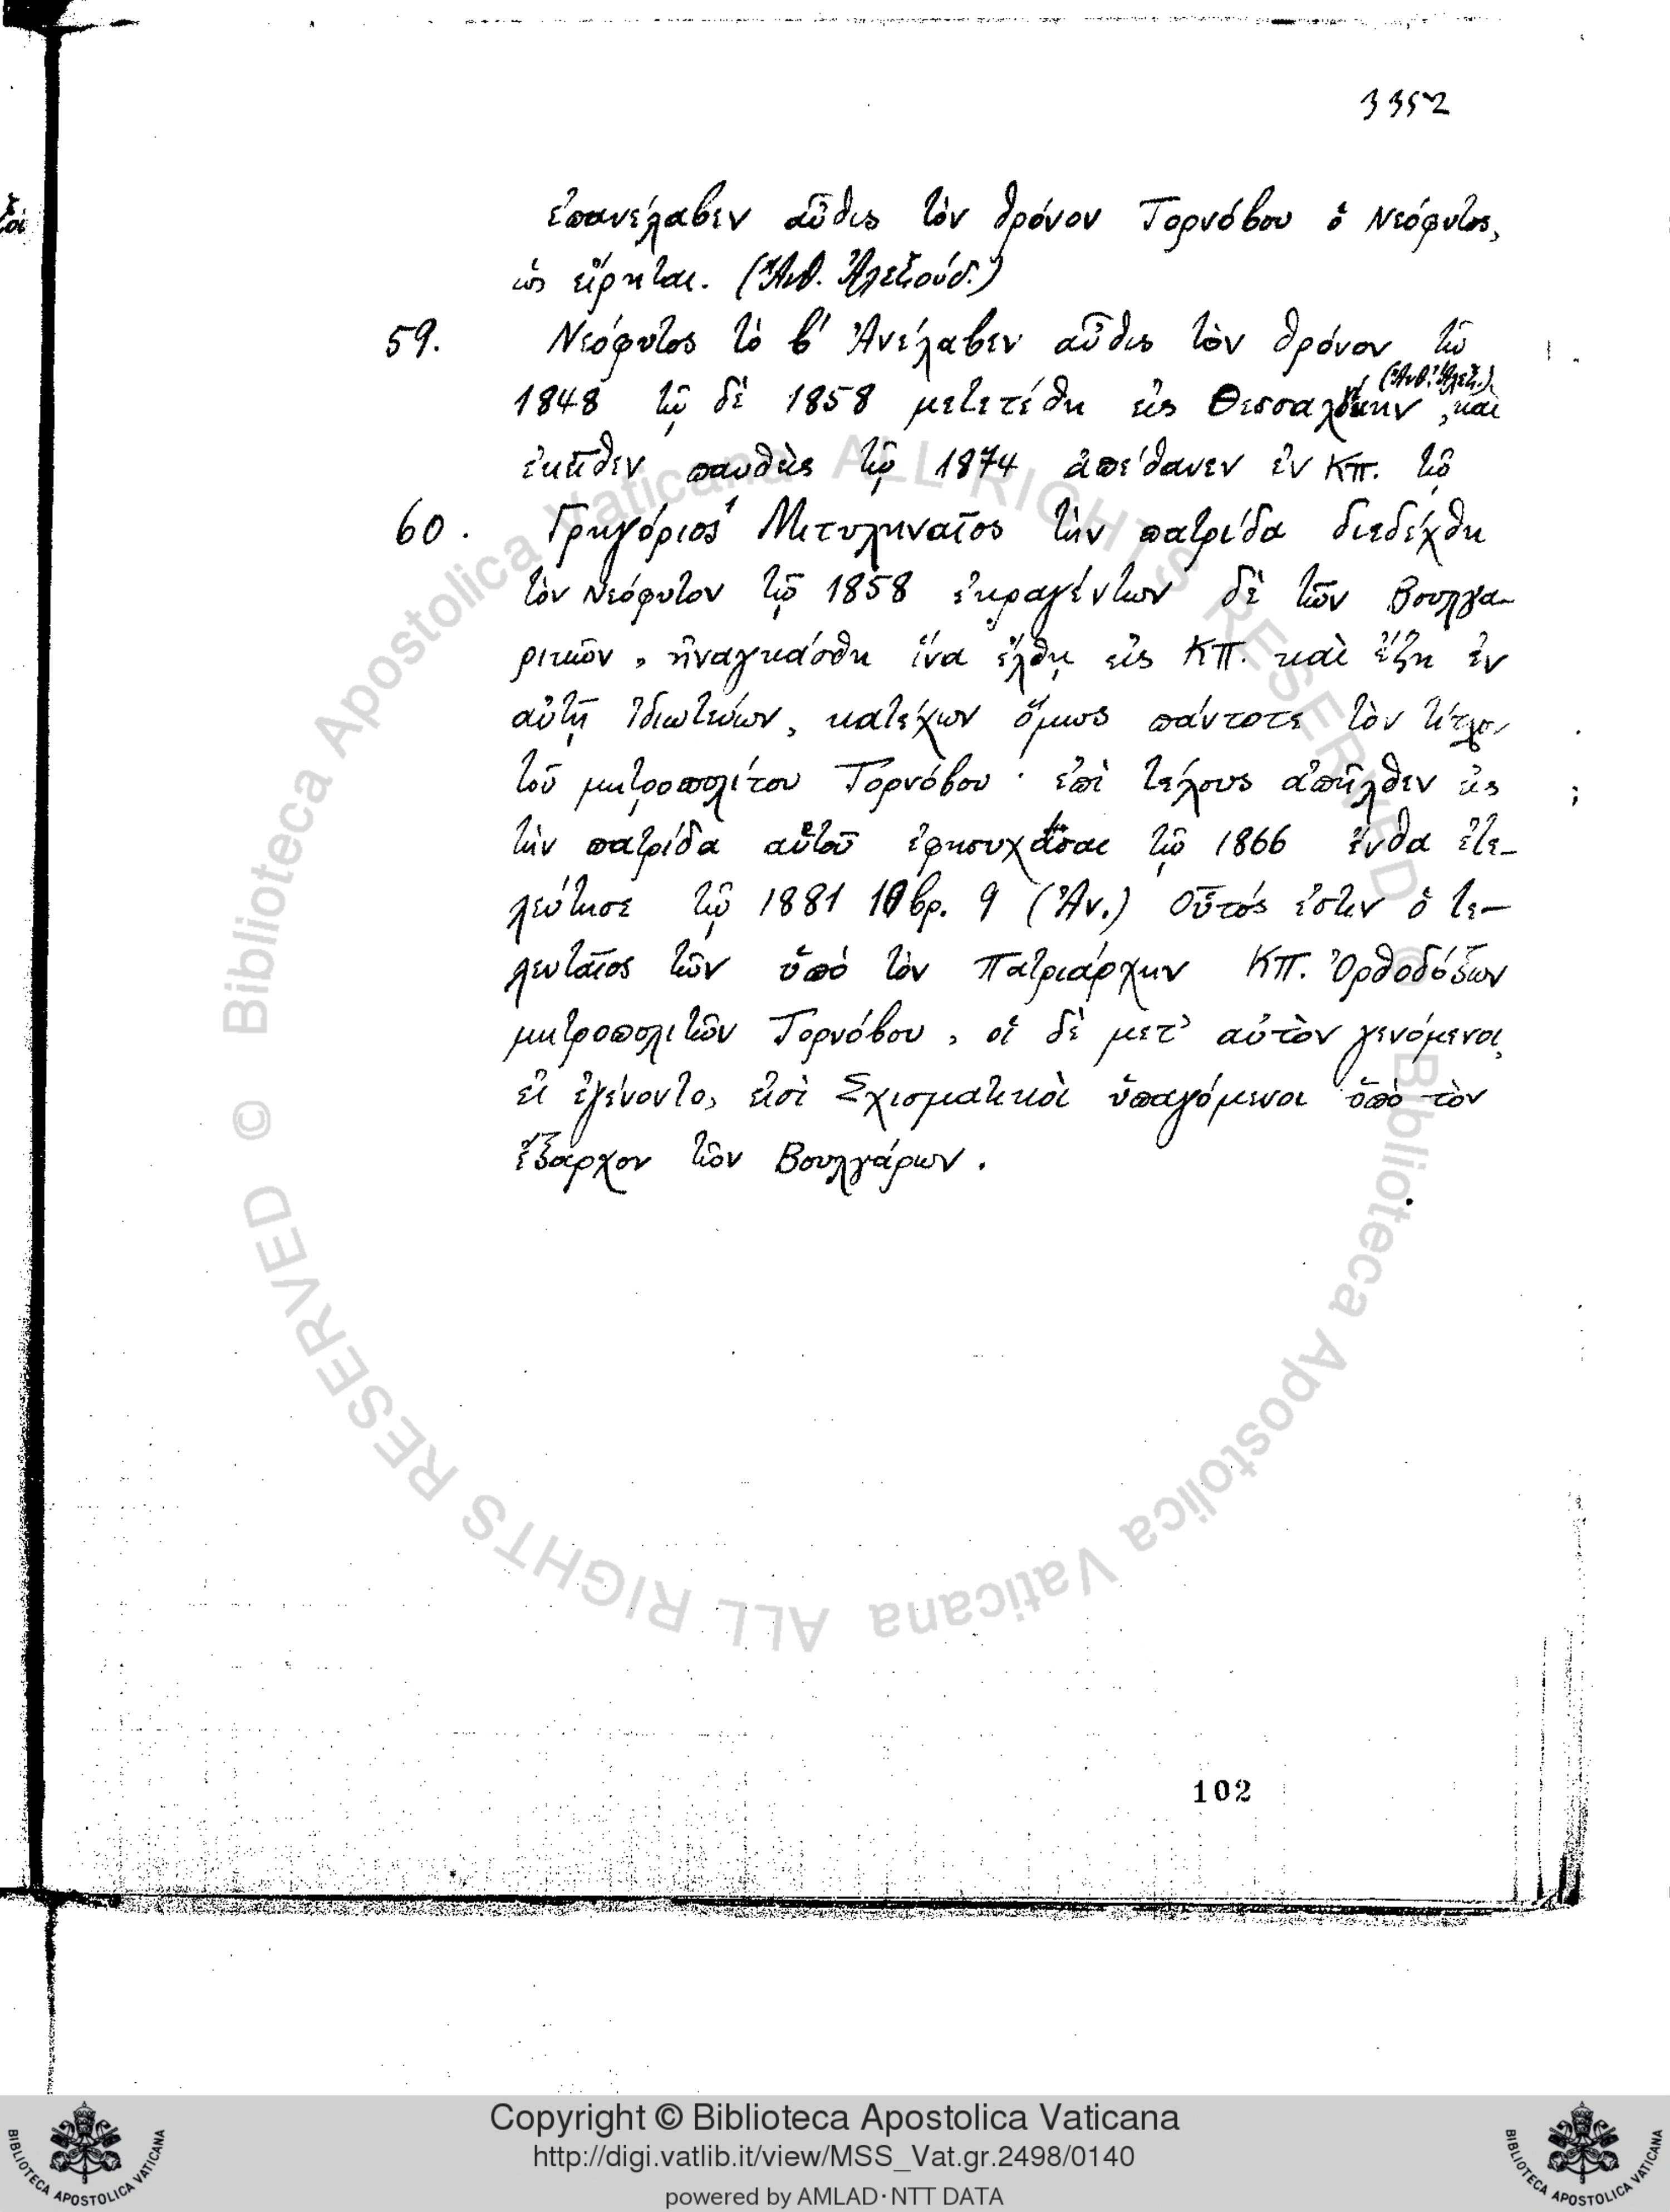 3352
ἐπανέλαβεν αὖθις τὸν θρόνον Τορνόβου ὁ Νεόφυτος,
ὡς εἴρηται. (Ἀνθ. Ἀλεξούδ.)
59. Νεόφυτος τὸ β′ Ἀνέλαβεν αὖθις τὸν θρόνον τῷ
1848 τῷ δὲ 1858 μετετέθη εἰς Θεσσαλ/κην (Ἀνθ. Ἀλεξ.), καὶ
ἐκεῖθεν παυθεὶς τῷ 1874 ἀπέθανεν ἐν ΚΠ. τῷ
60. Γρηγόριος Μιτυληναῖος τὴν πατρίδα διεδέχθη
τὸν Νεόφυτον τῷ 1858 ἐκραγέντων δὲ τῶν Βουλγα-
ρικῶν, ἠναγκάσθη ἵνα ἔλθῃ εἰς ΚΠ. καὶ ἔζη ἐν
αὐτῇ ἰδιωτεύων, κατέχων ὅμως πάντοτε τὸν τίτλον
τοῦ μητροπολίτου Τορνόβου· ἐπὶ τέλους ἀπῆλθεν εἰς
τὴν πατρίδα αὐτοῦ τῷ 1866 ἔνθα ἐτε-
λεύτησε τῷ 1881 10βρ. 9 (Ἀν.) Οὗτός ἐστιν ὁ τε-
λευταῖος τῶν ὑπὸ τὸν Πατριάρχην ΚΠ. Ὀρθοδόξων
μητροπολιτῶν Τορνόβου, οἱ δὲ μετ' αὐτὸν γενόμενοι,
εἰ ἐγένοντο, εἰσὶ Σχισματικοὶ ὑπαγόμενοι ὑπὸ τὸν
ἔξαρχον τῶν Βουλγάρων.
102
© Biblioteca Apostolica Vaticana ALL RIGHTS RESERVED © Biblioteca Apostolica Vaticana ALL RIGHTS RESERVED
Copyright © Biblioteca Apostolica Vaticana
http://digi.vatlib.it/view/MSS_Vat.gr.2498/0140
powered by AMLAD·NTT DATA
BIBLIOTECA APOSTOLICA VATICANA
BIBLIOTECA APOSTOLICA VATICANA